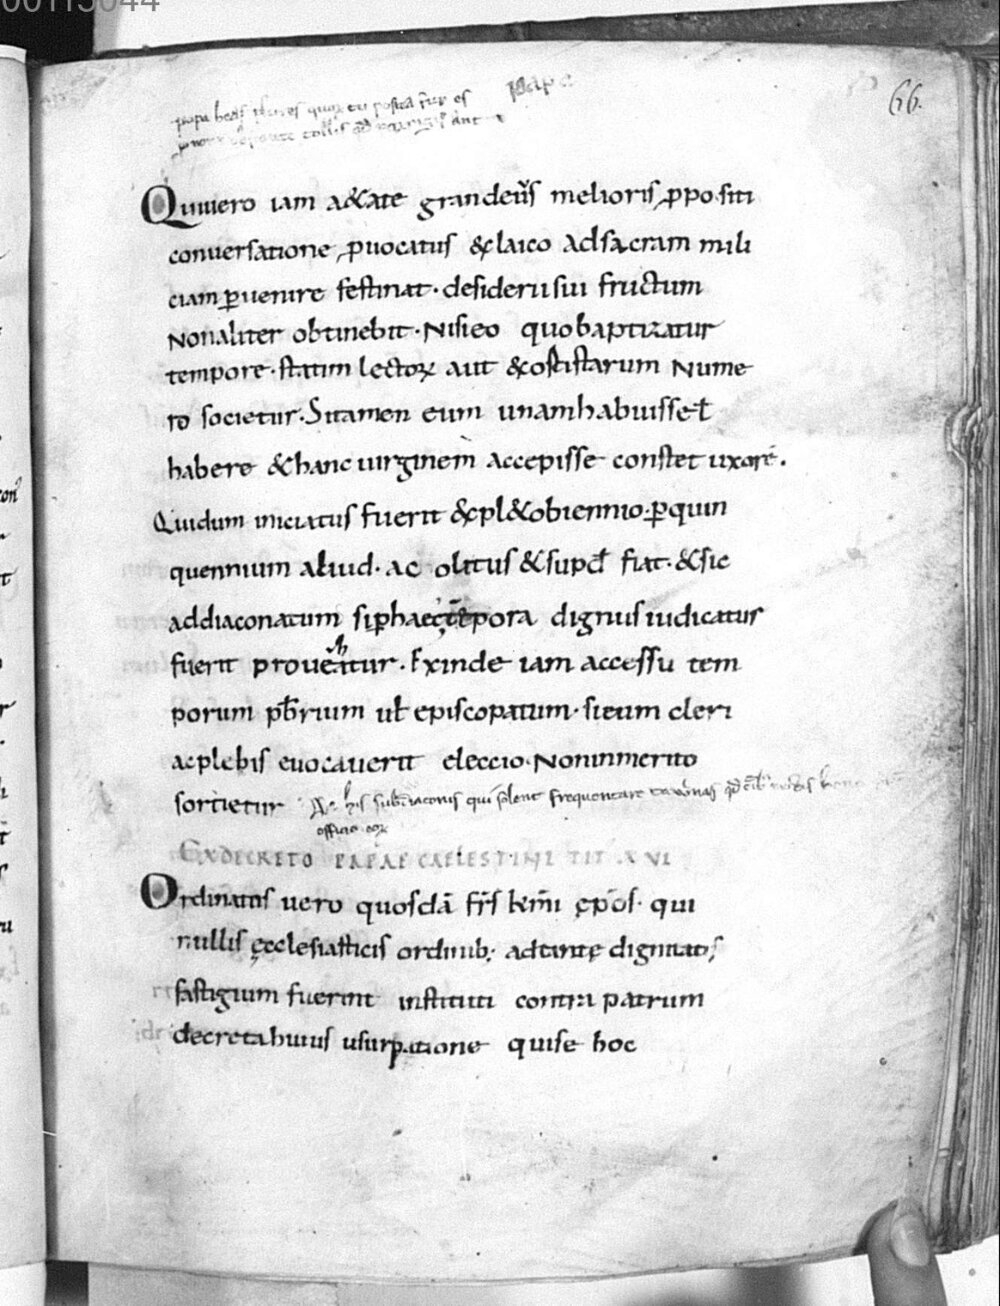 00115044
pape
66.
Quiuero iam a&ate grandeus̄ melioris ꝓpositi
conuersatione ꝓuocatus &laico adsacram mili
ciam ꝑuenire festinat· desideriisui fructum
Nonaliter obtinebit· Nisieo quobaptizatur
tempore· statim lectoꝝ aut &ostistarum Nume
ro societur· Sitamen eum unamhabuisse ł
habere &hanc uirginem accepisse constet uxorē.
Quidum iniciatus fuerit &pl&obiennio· ꝑquin
quennium aliud· ac olitus &supd̄ fiat· &sic
addiaconatum siꝑhaec tēpora dignus iudicatur
fuerit proueatur· Exinde iam accessu tem
porum pb̄rium uł episcopatum· sieum cleri
acplebis euocauerit eleccio· Noninmerito
sortietur
qui solent frequentare
EXDECRETO PAPAE CAELESTINI TIT XVI
Ordinatos uero quosdā fr̄s km̄i ep̄os· qui
nullis ęcclesiasticis ordinib; adtantę dignitatis
fastigium fuerint instituti contra patrum
decretahuius usurpatione quise hoc